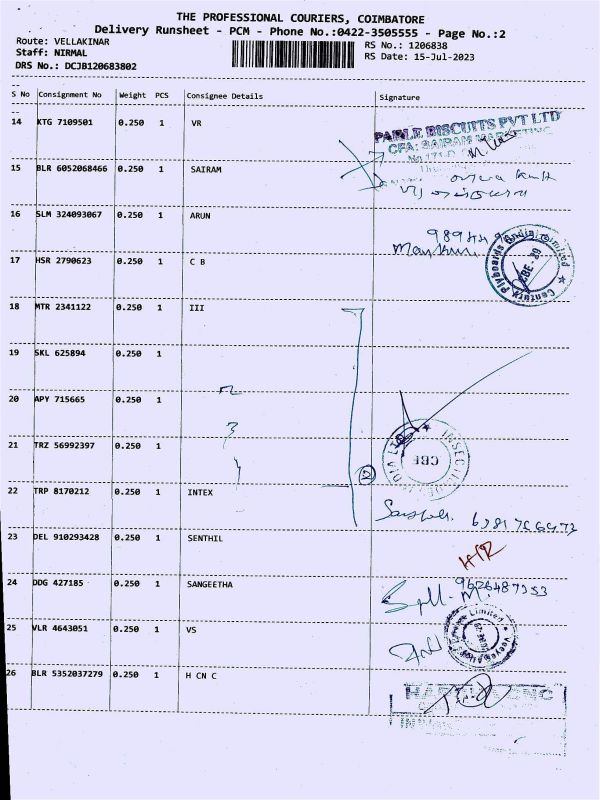 THE PROFESSIONAL COURIERS, COIMBATORE
Delivery Runsheet - PCM - Phone No.:0422-3505555 - Page No.:2
Route: VELLAKINAR
RS No.: 1206838
Staff: NIRMAL
RS Date: 15-Jul-2023
DRS No.: DCJB120683802
S No Consignment No Weight PCS Consignee Details Signature
14 KTG 7109501 0.250 1 VR
PARLE BISCUITS PVT LTD
CFA: SAIRAM MARKETING
15 BLR 6052068466 0.250 1 SAIRAM
16 SLM 324093067 0.250 1 ARUN
17 HSR 2790623 0.250 1 C B
Century Plyboards (India) Limited
CBE
18 MTR 2341122 0.250 1 III
19 SKL 625894 0.250 1
20 APY 715665 0.250 1
21 TRZ 56992397 0.250 1
CBE
22 TRP 8170212 0.250 1 INTEX
23 DEL 910293428 0.250 1 SENTHIL
24 DDG 427185 0.250 1 SANGEETHA
25 VLR 4643051 0.250 1 VS
26 BLR 5352037279 0.250 1 H CN C